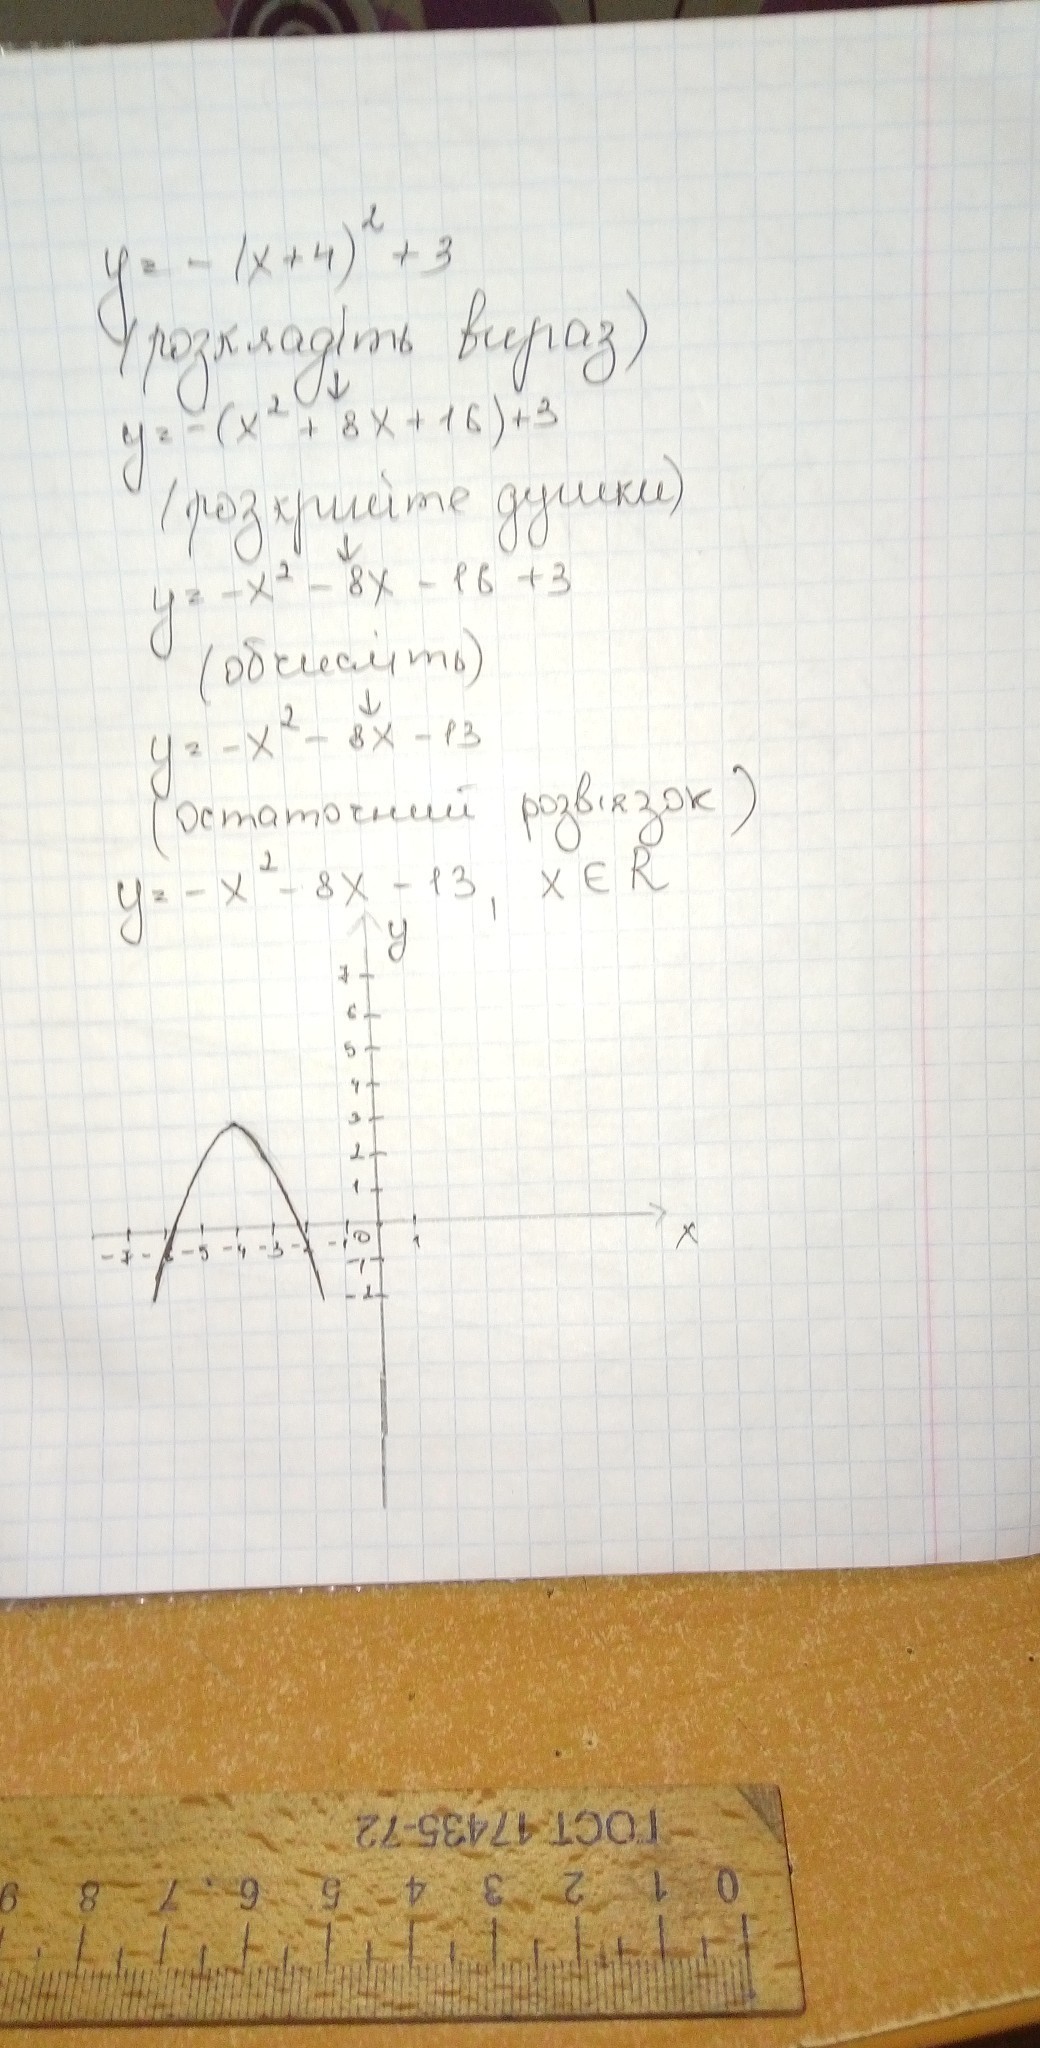 y = - (x+4)² + 3
(розкладіть вираз)
↓
y = -(x² + 8x + 16) + 3
(розкрийте душки)
↓
y = -x² - 8x - 16 + 3
(обчисліть)
↓
y = -x² - 8x - 13
(остаточний розв'язок)
y = -x² - 8x - 13, x ∈ R
y
7
6
5
4
3
2
1
-7 -6 -5 -4 -3 -2 -1 0 1 x
-1
-2
ГОСТ 17435-72
0 1 2 3 4 5 6 7 8 9